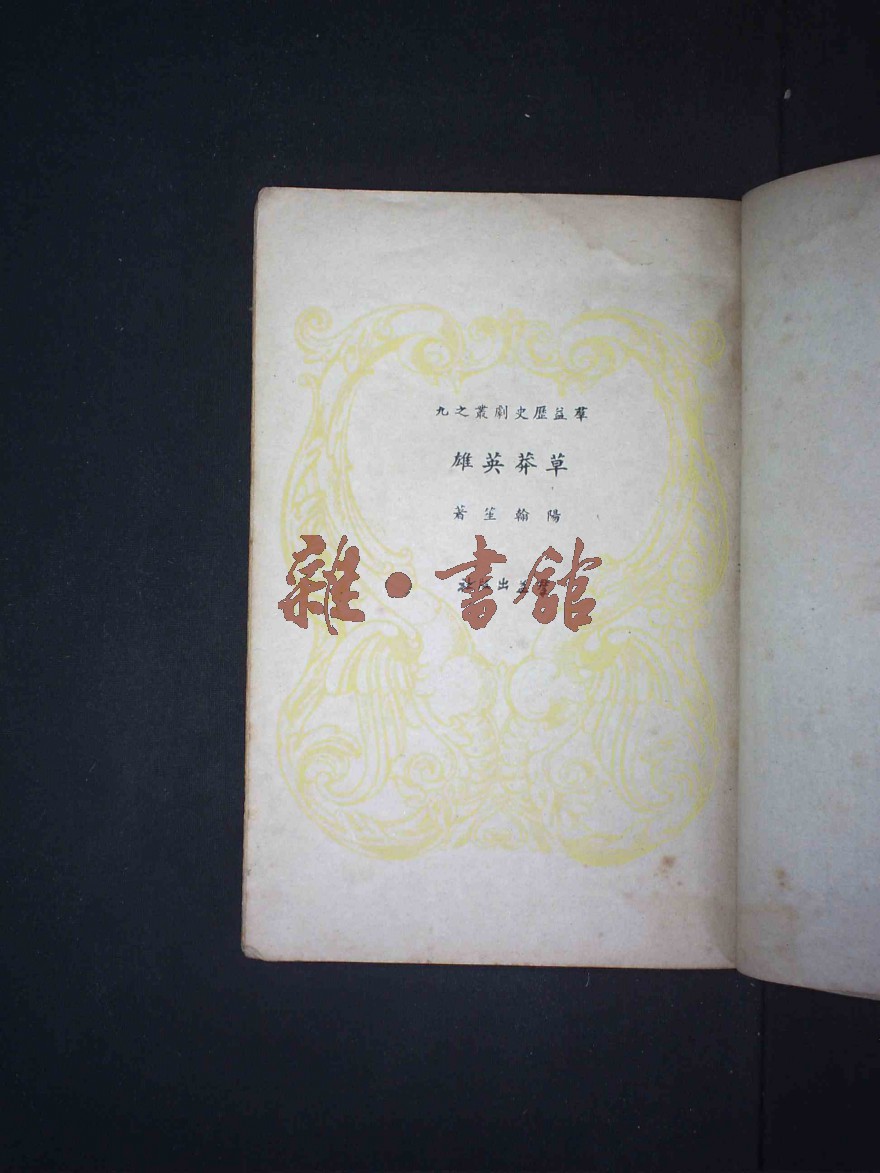 羣益歷史劇叢之九
草莽英雄
陽翰笙著
羣益出版社
雜·書館